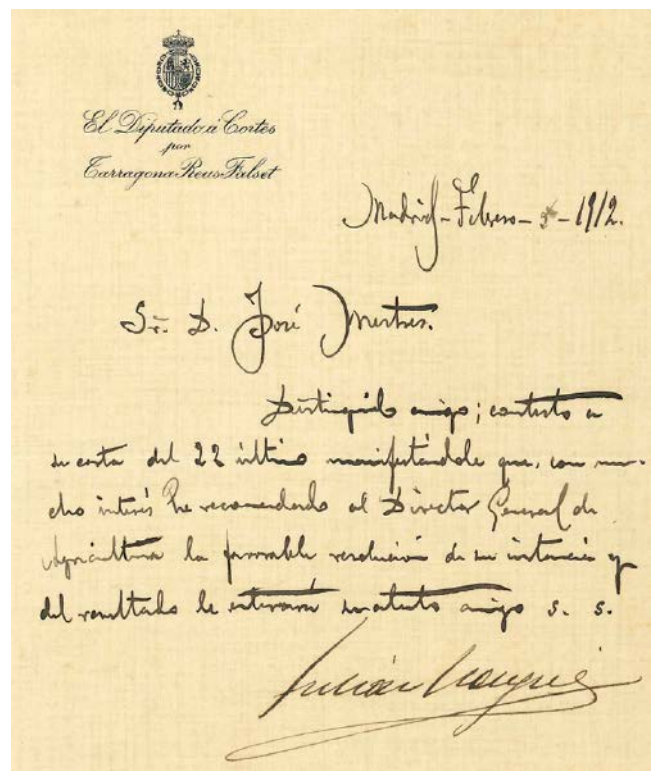 El Diputado à Cortes
por
Tarragona-Reus-Falset
Madrid - Febrero - - 1912.
Sr. D. José Mestres.
Distinguido amigo; contesto a
su carta del 22 último manifestándole que, con mu-
cho interés he recomendado al Director General de
Agricultura la favorable resolución de su instancia y
del resultado le enterará su atento amigo s. s.
Julián Nougués